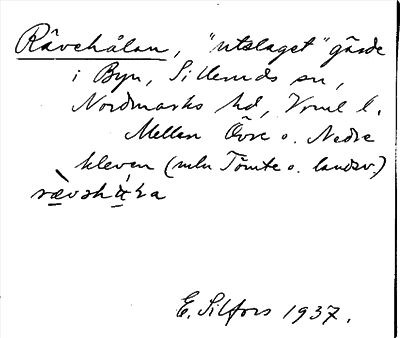 Rävehålan, "utslaget" gärde
i Byn, Silleruds sn,
Nordmarks hd, Vrml l.
Mellan Övre o. Nedre
kleven (mln Tömte o. landsv.)
E. Silfors 1937.